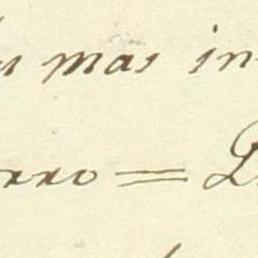 mas in
rro =